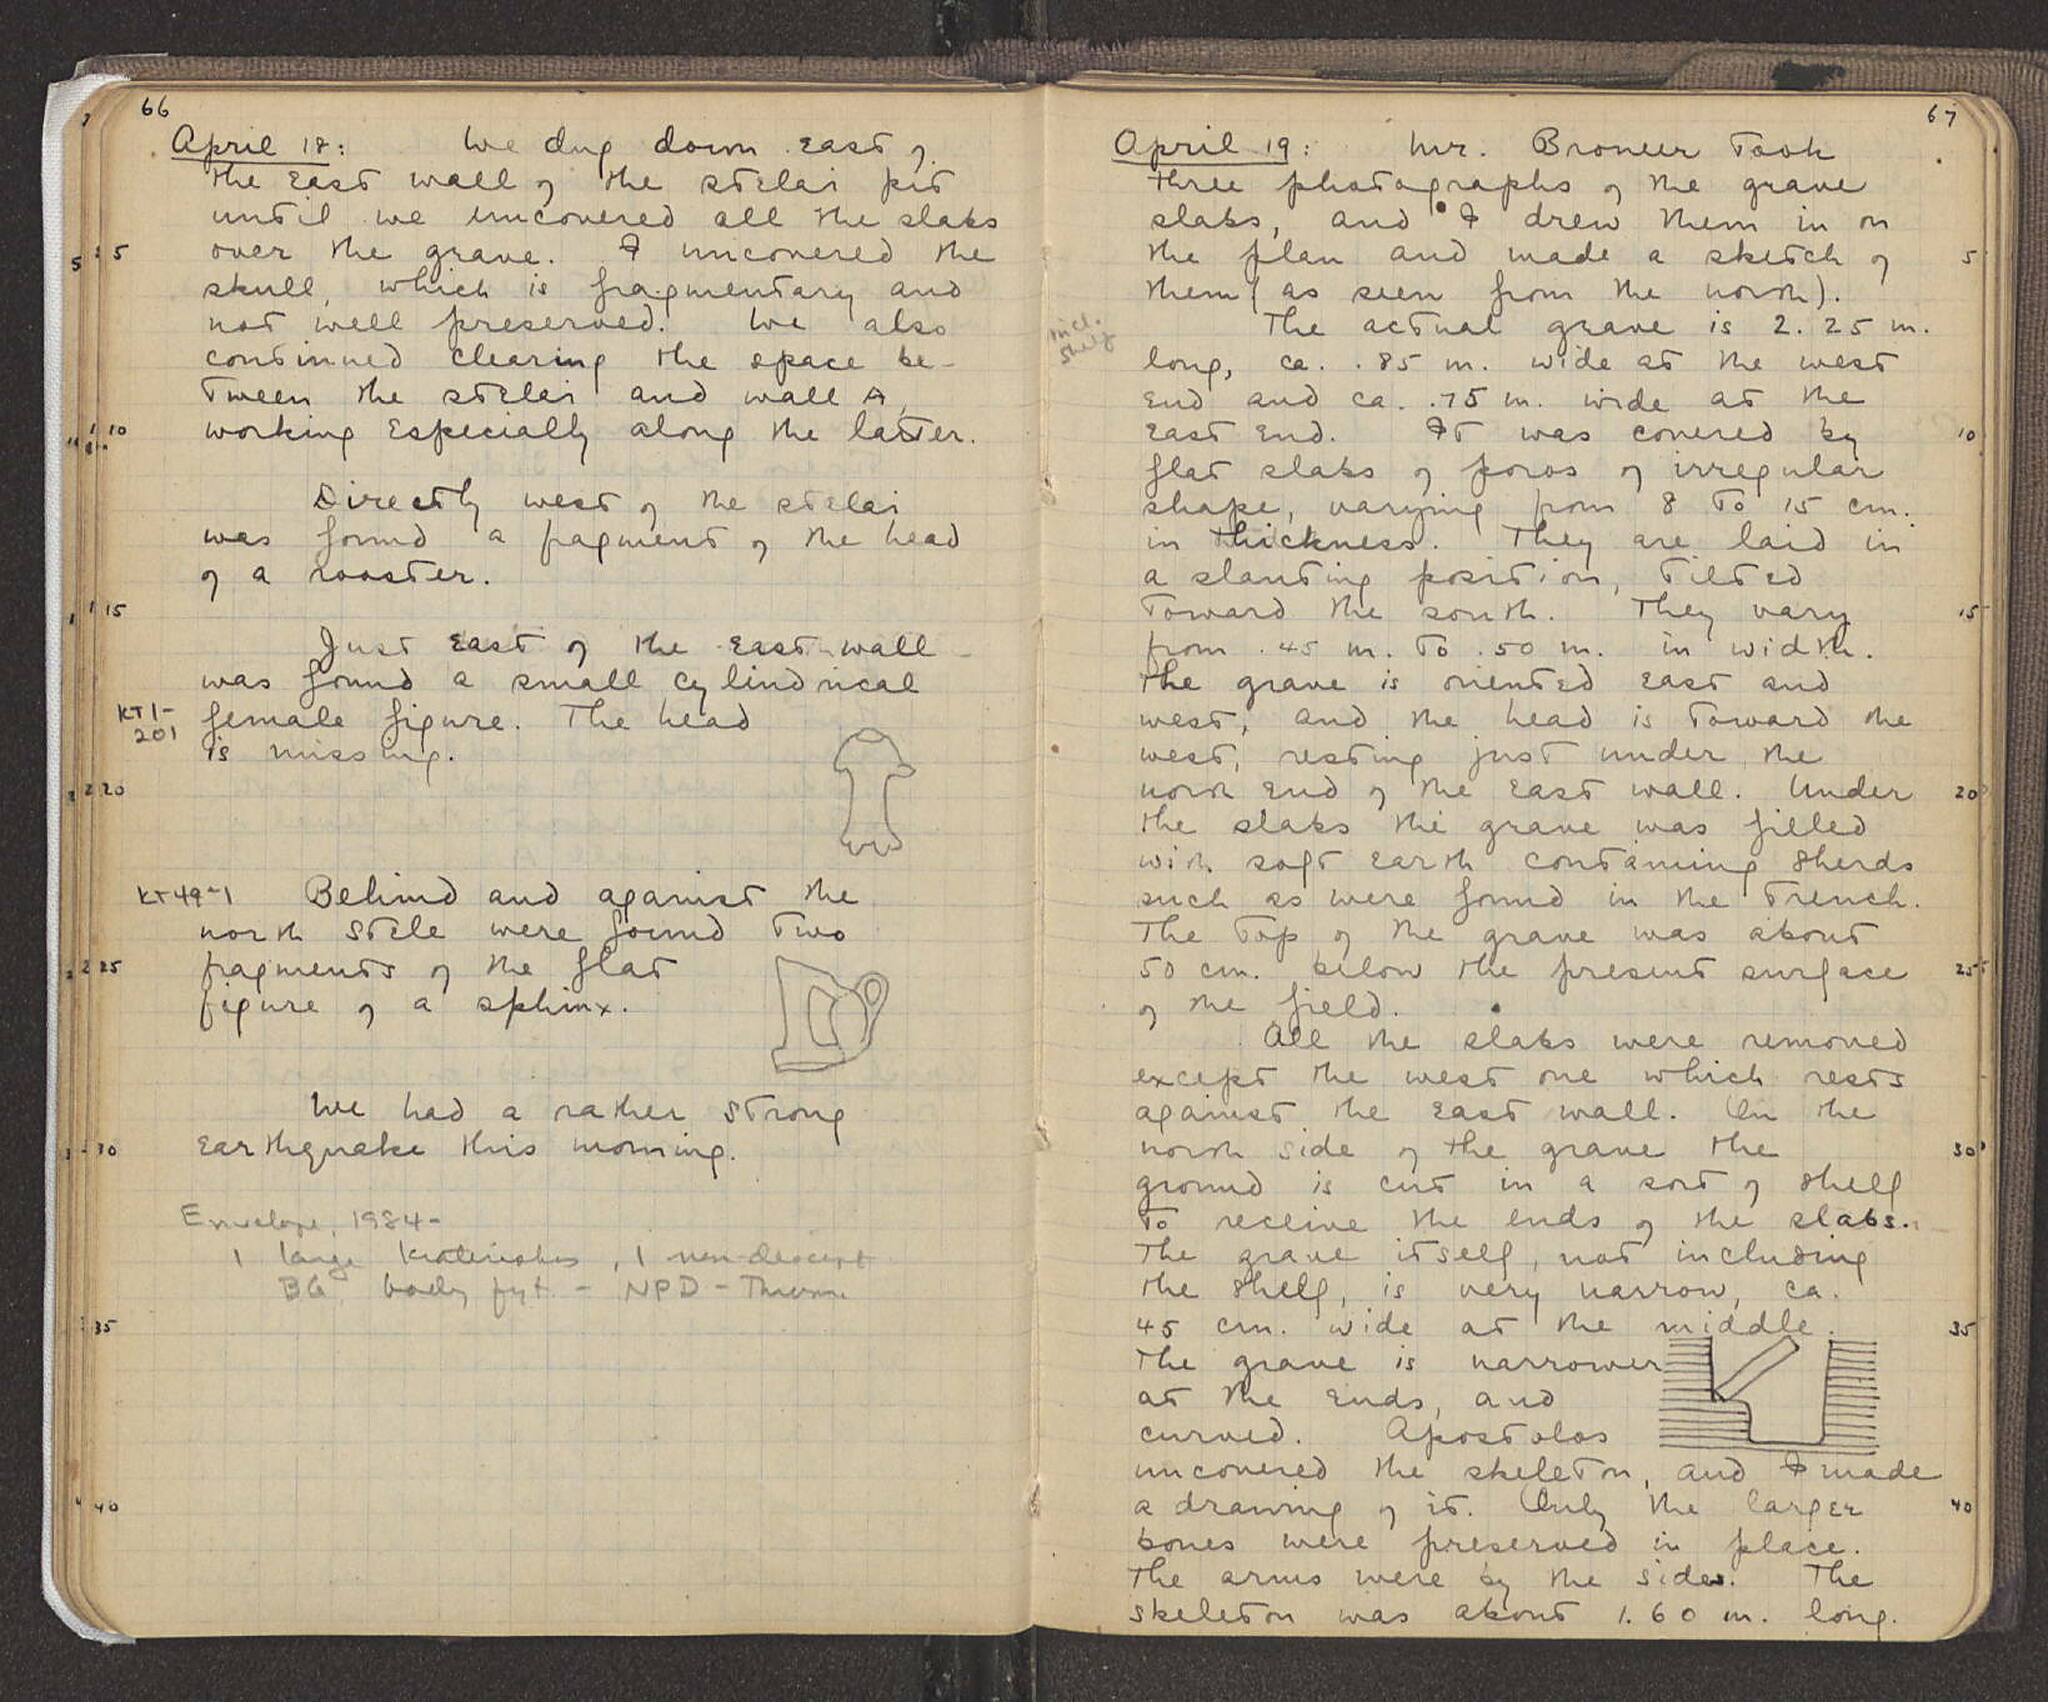 66
April 18: We dug down East of
the East wall of the stelai pit
until we uncovered all the slabs
over the grave. I uncovered the
skull, which is fragmentary and
not well preserved. We also
continued clearing the space be-
tween the stelai and wall A,
working Especially along the latter.
Directly west of the stelai
was found a fragment of the head
of a rooster.
Just East of the East wall
was found a small cylindrical
KT1-
201
female figure. The head
is missing.
KT49-1
Behind and against the
north stele were found two
fragments of the flat
figure of a sphinx.
We had a rather strong
Earthquake this morning.
Envelope, 1984-
1 large kotiliskos, 1 non-descript
BG body fgt. - NPD -
5
10
15
20
25
30
35
40
67
April 19: Mr. Broneer took
three photographs of the grave
slabs, and I drew them in on
the plan and made a sketch of
them (as seen from the north).
The actual grave is 2.25 m.
incl.
shelf
long, ca. .85 m. wide at the west
End and ca. .75 m. wide at the
East End. It was covered by
flat slabs of poros of irregular
shape, varying from 8 to 15 cm.
in thickness. They are laid in
a slanting position, tilted
toward the south. They vary
from .45 m. to .50 m. in width.
The grave is oriented East and
west, and the head is toward the
west, resting just under the
north End of the East wall. Under
the slabs the grave was filled
with soft Earth containing sherds
such as were found in the trench.
The top of the grave was about
50 cm. below the present surface
of the field.
All the slabs were removed
except the west one which rests
against the East wall. On the
north side of the grave the
ground is cut in a sort of shelf
to receive the ends of the slabs.
The grave itself, not including
the shelf, is very narrow, ca.
45 cm. wide at the middle.
The grave is narrower
at the Ends, and
curved. Apostolos
uncovered the skeleton, and I made
a drawing of it. Only the larger
bones were preserved in place.
The arms were by the sides. The
skeleton was about 1.60 m. long.
5
10
15
20
25
30
35
40